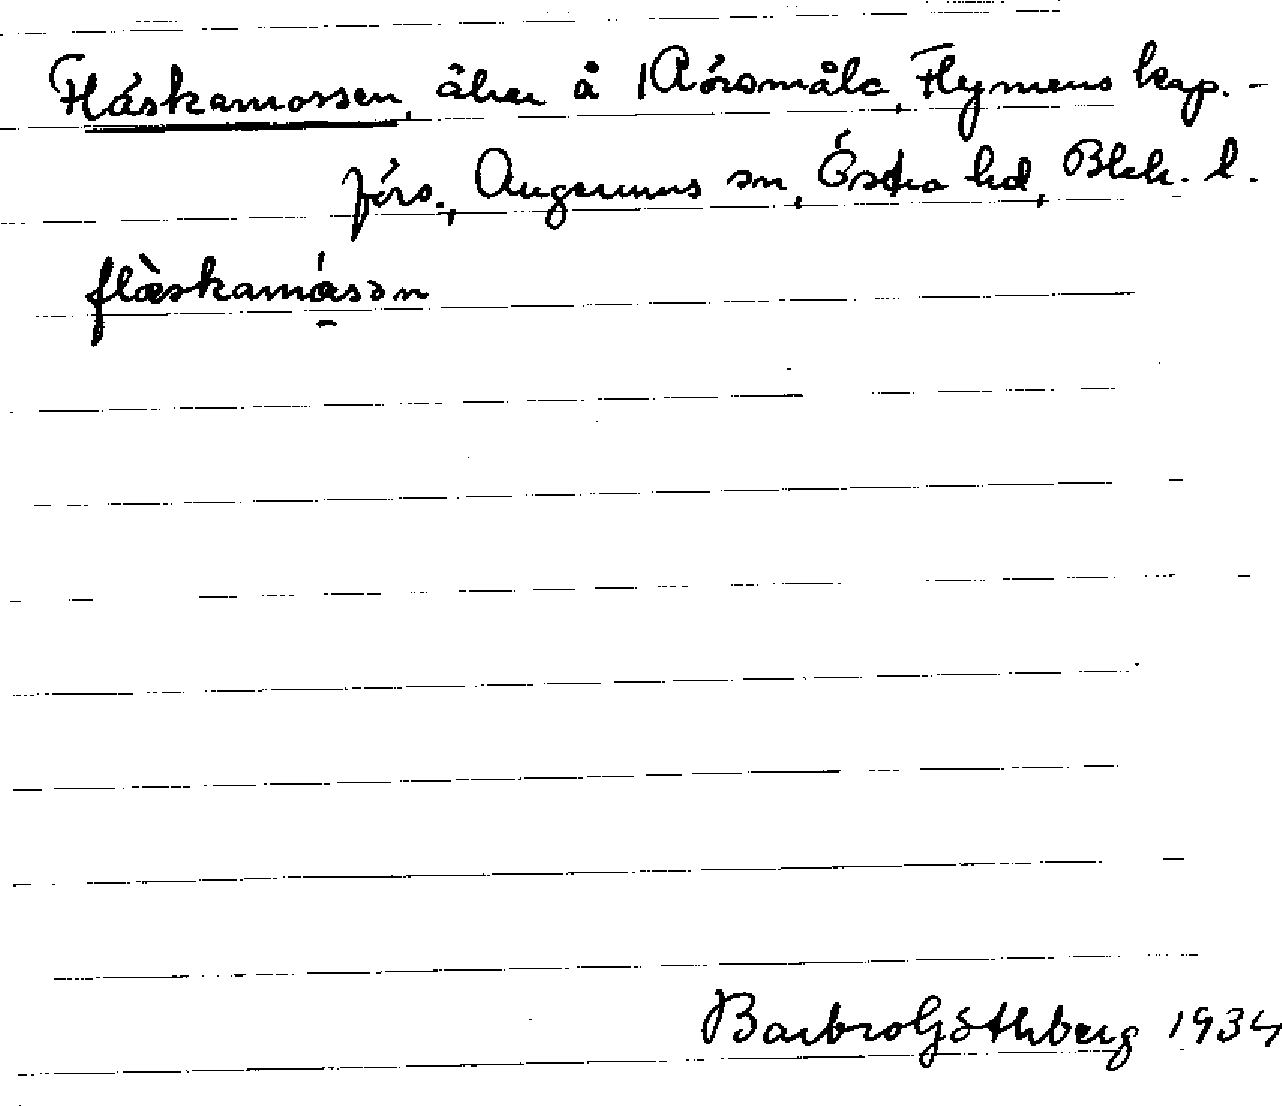 Fläskamossen, åker å 1 Rörsmåla, Flymens kap.-
förs., Augerums sn, Östra hd, Blek. l.
flæ̀skamásən
Barbro Göthberg 1934